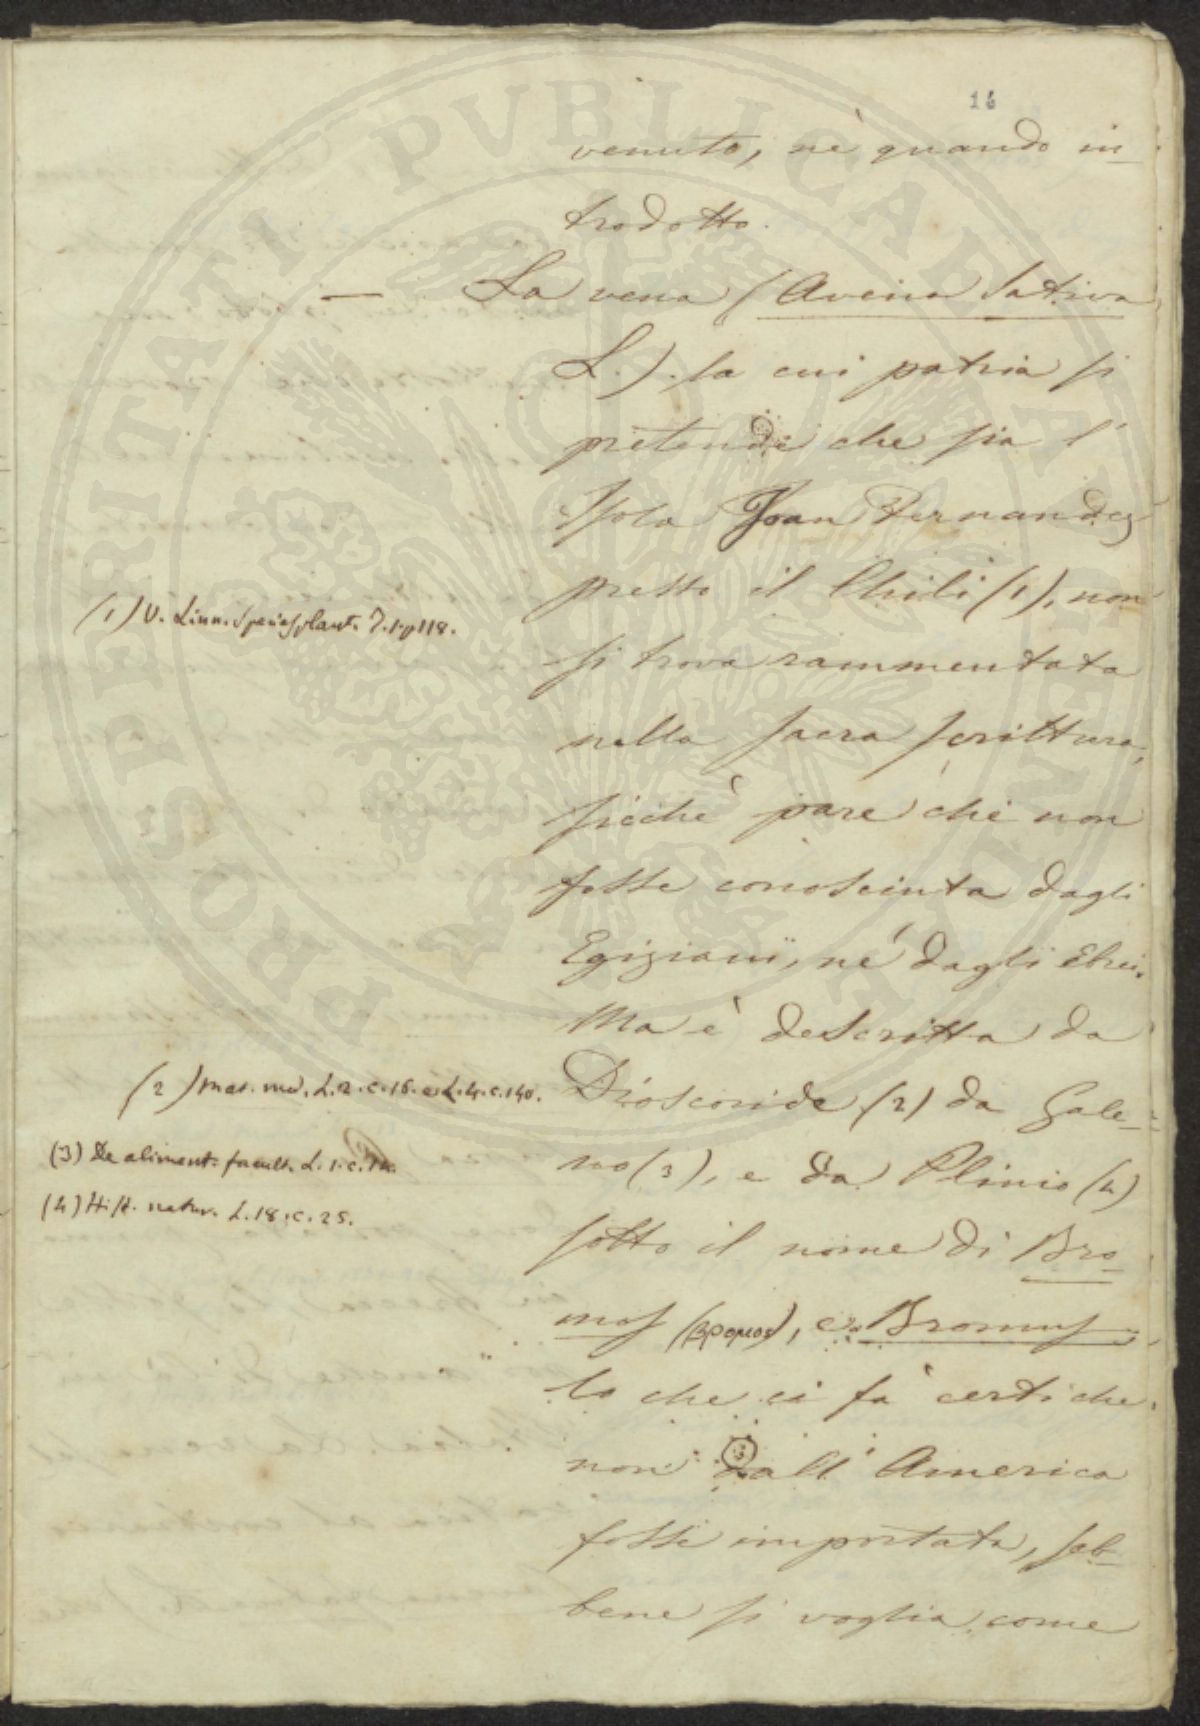 16
venuto, nè quando in-
trodotto.
— La vena (Avena Sativa
L.) la cui patria si
pretende che sia l'
Isola Joan Fernandez
presso il Chili (1), non
si trova rammentata
nella sacra scrittura,
sicchè pare che non
fosse conosciuta dagli
Egiziani, nè dagli Ebrei.
Ma è descritta da
Dioscoride (2) da Gale-
no (3), e da Plinio (4)
sotto il nome di Bro-
mos (βρομος), e Bromus
lo che ci fà certi che
non dall' America
fosse importata, seb-
bene si voglia come
(1) V. Linn. Species plant. T. 1. p 118.
(2) Mat. med. L. 2. c. 16. e L. 4. c. 140.
(3) De aliment. facult. L. 1. c. 14.
(4) Hist. natur. L. 18. c. 25.
PROSPERITATI PVBLICAE AVGENDAE